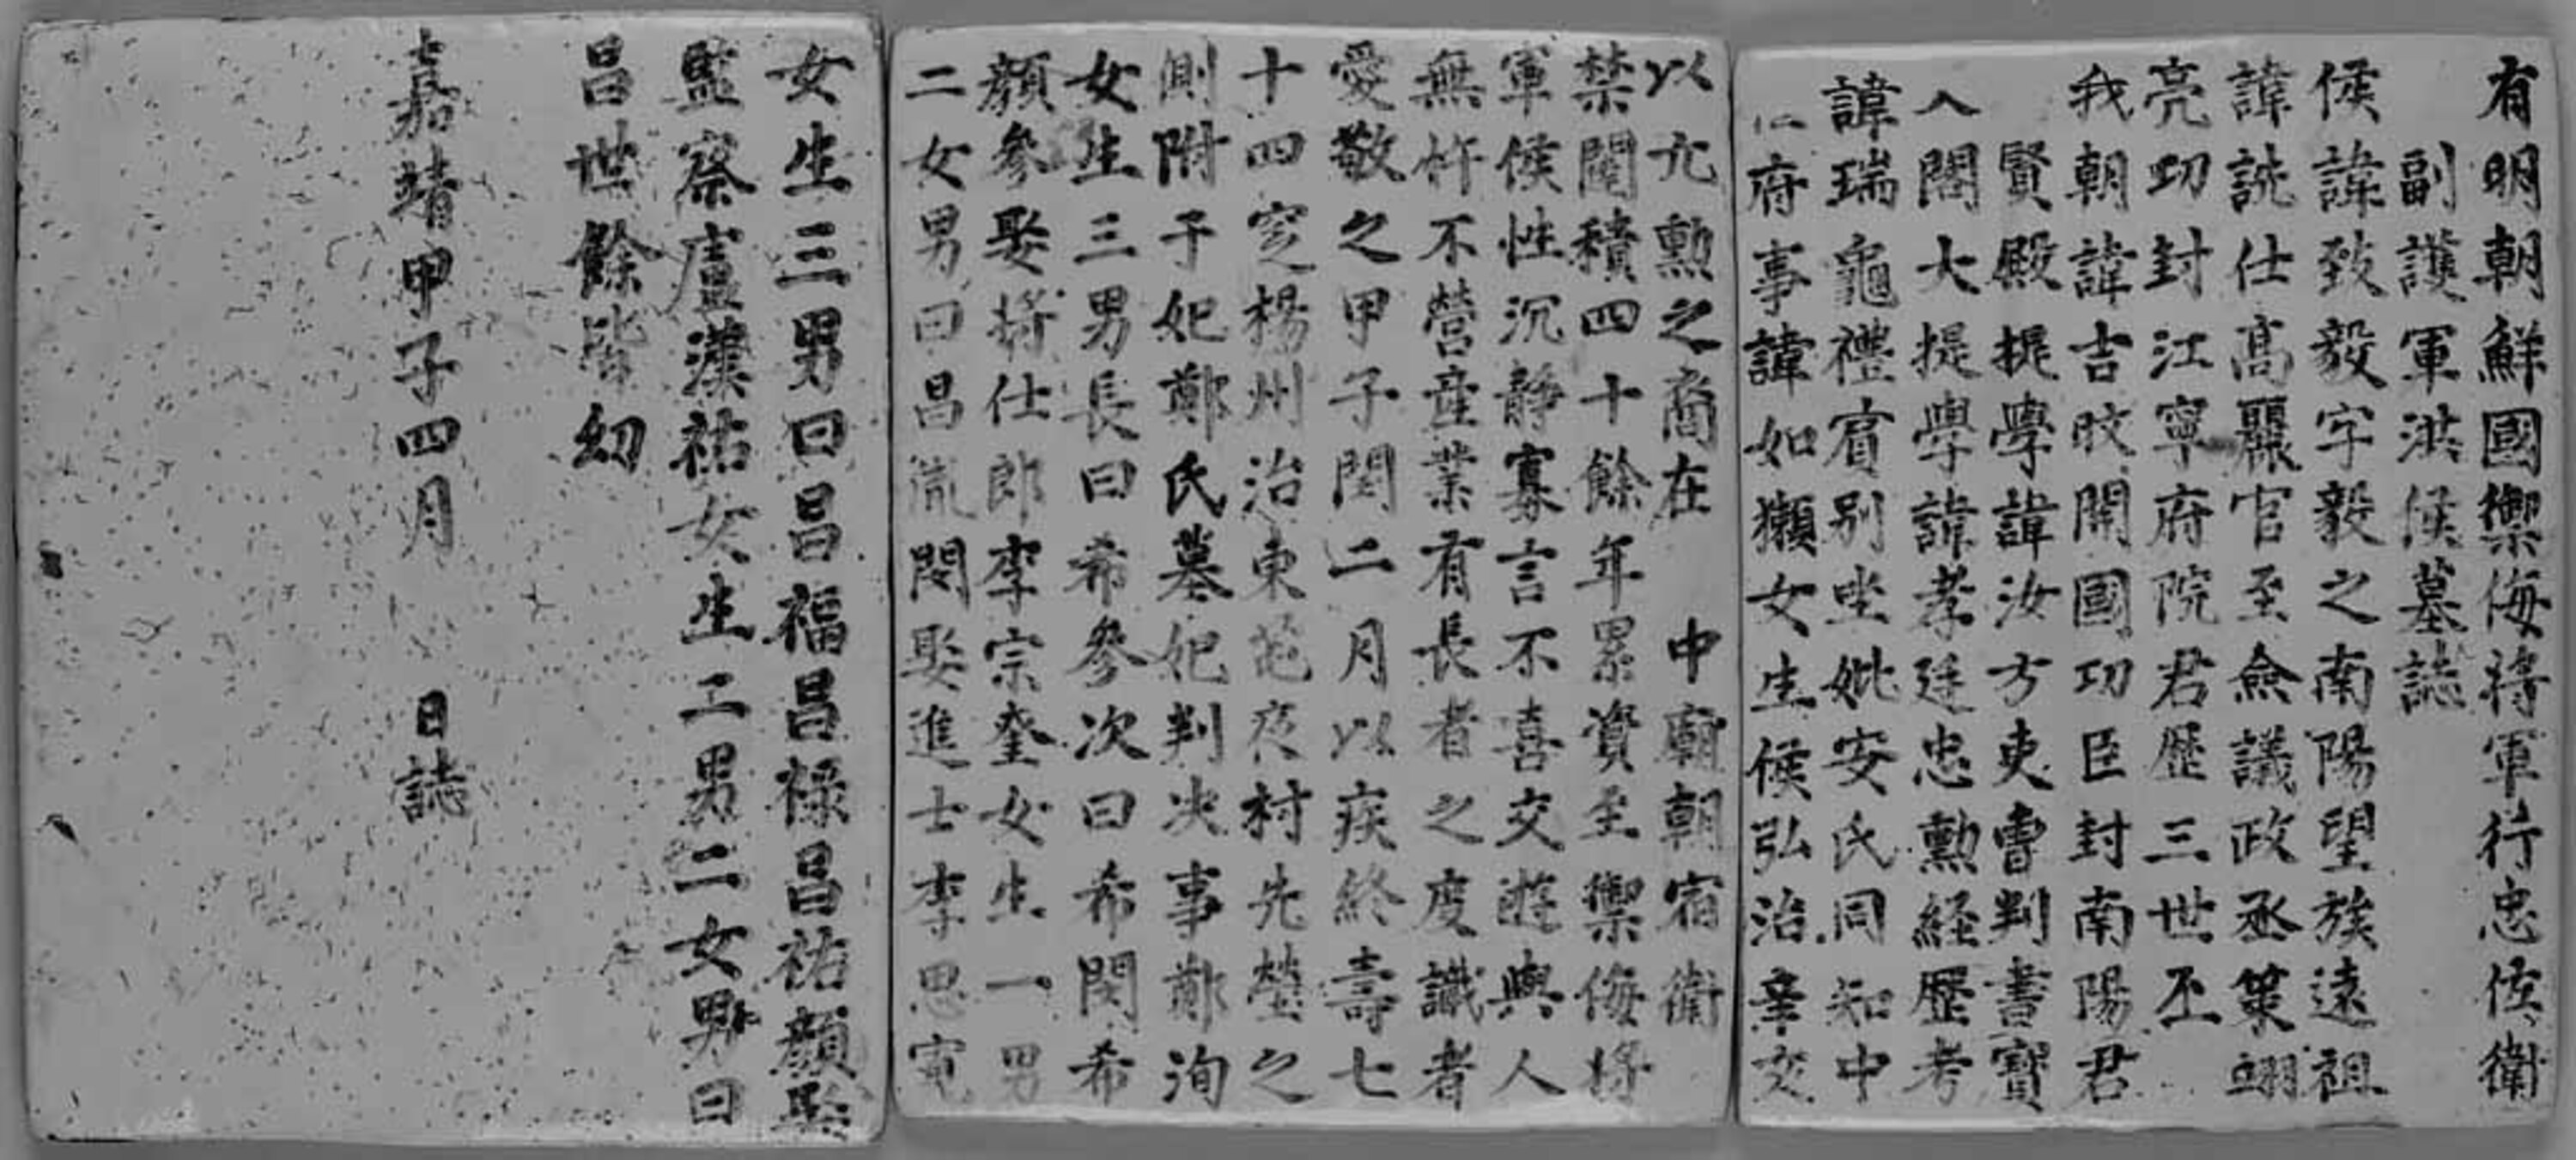 有明朝鮮國禦侮將軍行忠佐衛
副護軍洪侯墓誌
侯諱致毅字毅之南陽望族遠祖
諱詵仕高麗官至僉議政丞策翊
亮功封江寧府院君歷三世丕
我朝諱吉旼開國功臣封南陽君
賢殿提學諱汝方吏曹判書寶
入閣大提學諱孝廷忠勳経歷考
諱瑞龜禮賓別坐妣安氏同知中
府事諱如獺女生侯弘治辛交
以元勳之裔在 中廟朝宿衛
禁闥積四十餘年累資至禦侮將
軍侯性沉靜寡言不喜交遊與人
無忤不營産業有長者之度識者
愛敬之甲子閏二月以疾終壽七
十四窆楊州治東芚夜村先塋之
側附于妃鄭氏墓妃判决事鄭洵
女生三男長曰希參次曰希閔希
顏參娶將仕郎李宗奎女生一男
二女男曰昌胤閔娶進士李思寬
女生三男曰昌福昌祿昌祐顏娶
監察盧漢祐女生二男二女男曰
昌世餘皆幼
嘉靖甲子四月 日誌